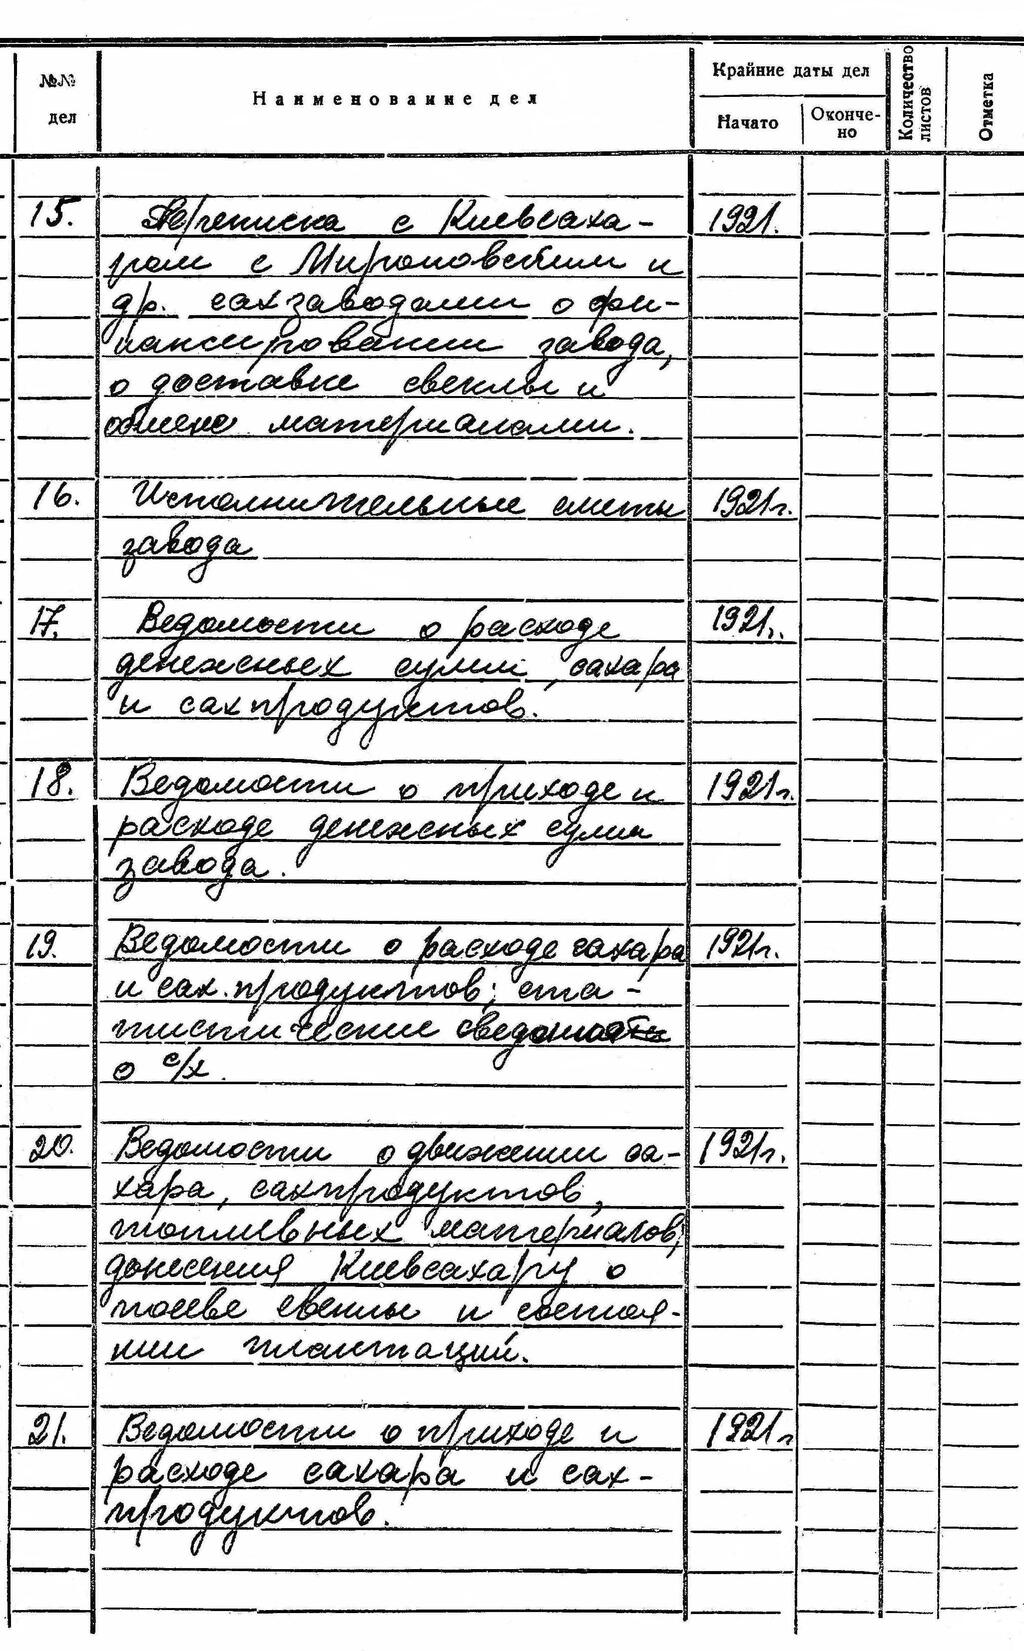 №№ дел
Наименование дел
Крайние даты дел
Начато
Окончено
Количество листов
Отметка
15. Переписка с Киевсаха- 1921.
ром с Мироновским и
др. сахзаводами о фи-
нансировании завода,
о доставке свеклы и
обмене материалами.
16. Исполнительные сметы 1921г.
завода
17. Ведомости о расходе 1921г.
денежных сумм, сахара
и сахпродуктов.
18. Ведомости о приходе и 1921г.
расходе денежных сумм
завода.
19. Ведомости о расходе сахара 1921г.
и сах. продуктов; ста-
тистические
о с/х.
20. Ведомости о движении са- 1921г.
хара, сахпродуктов,
топливных материалов;
донесения Киевсахару о
посеве свеклы и состоя-
нии плантаций.
21. Ведомости о приходе и 1921г
расходе сахара и сах-
продуктов.